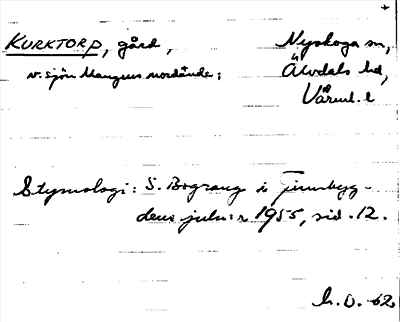 KURKTORP, gård,
Nyskoga sn,
v. sjön Mangens nordände;
Älvdals hd,
Värml. l
Etymologi: S. Bograng i Finnbyg-
dens julnr 1955, sid. 12.
h. O. 62